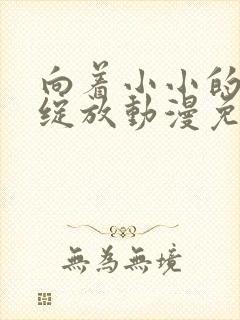 向着小小的
綻放動漫免
無為無境